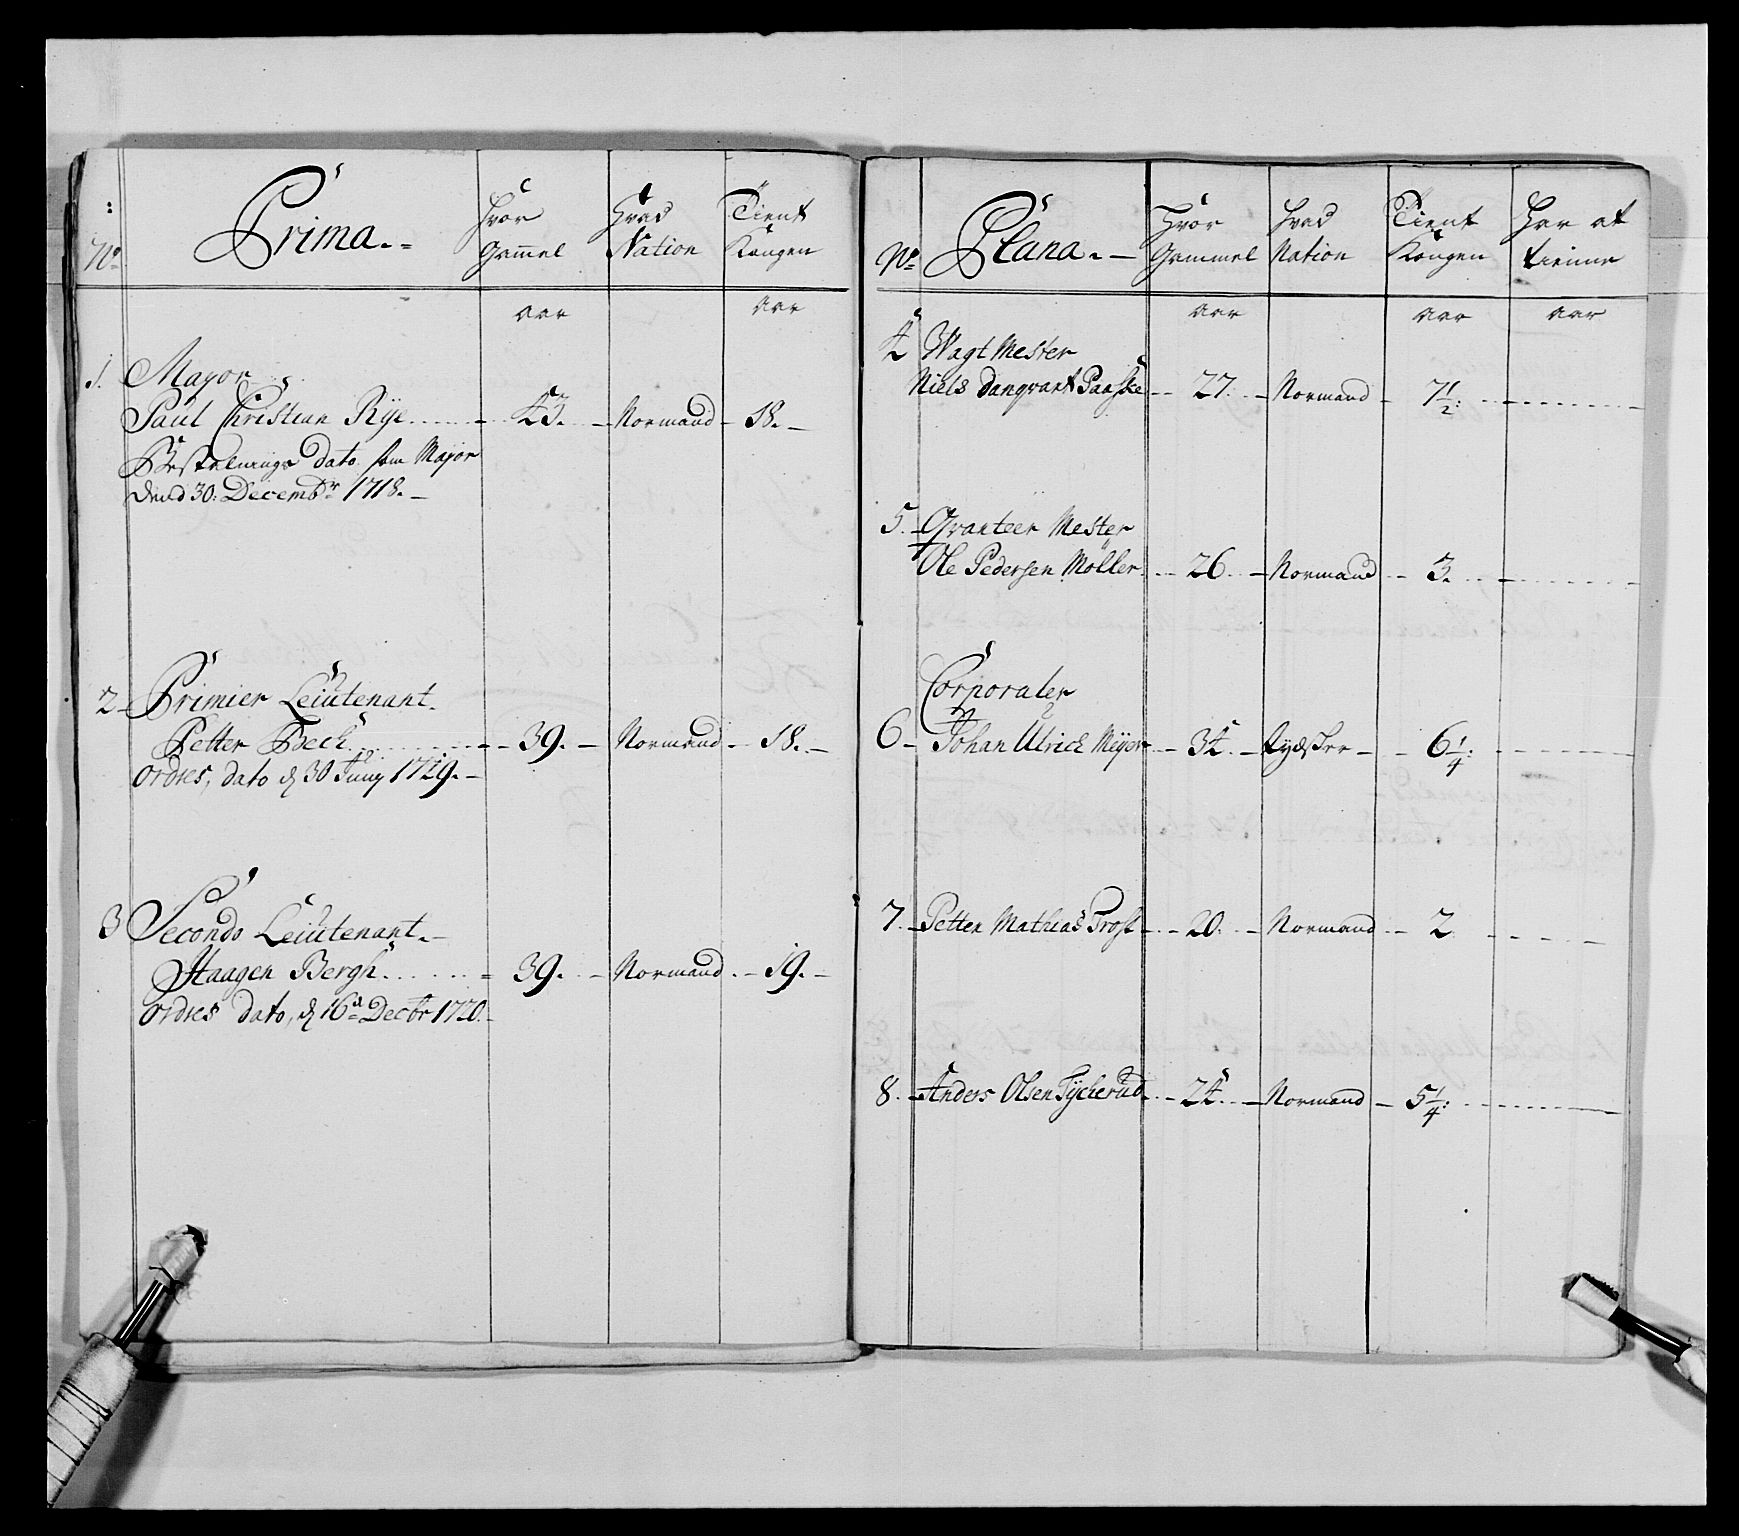 No
Prima.
Hvor Gammel
Hvad Nation
Tient Kongen
aar
aar
1. Major
Paul Christian Rye 43. Normand 18.
Bestalnings dato som Major
dend 30: Decembr 1718.
2 Primier Leiutenant.
Petter Beck 39. Normand 18.
Ordres, dato d 30 Juny 1729.
3 Secondo Leiutenant.
Haagen Bergh 39. Normand 19.
Ordres dato, d 16d Decbr 1720.
No
Plana.
Hvor Gammel
Hvad Nation
Tient Kongen
Har at tienne
aar
aar
aar
4 Wagt Mester
Niels Danqvart Paaske 27. Normand 7 1/2:
5. Qvarteer Mester
Ole Pedersen Møller 26 Normand 3.
Corporaler
6 Johan Ulrich Meyer 34 tydsker 6 1/4:
7. Petter Mathias Trost 20. Normand 2
8. Anders Olsen Tycherud 24. Normand 5 1/4: